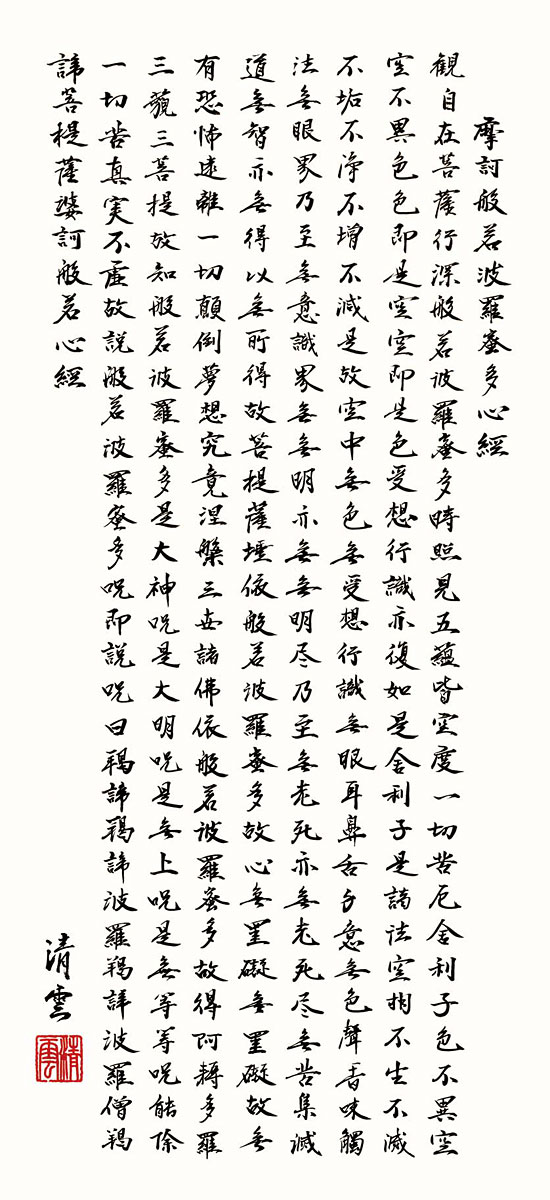 摩訶般若波羅蜜多心經
観自在菩薩行深般若波羅蜜多時照見五蘊皆空度一切苦厄舍利子色不異空
空不異色色即是空空即是色受想行識亦復如是舍利子是諸法空相不生不滅
不垢不浄不増不減是故空中無色無受想行識無眼耳鼻舌身意無色聲香味觸
法無眼界乃至無意識界無無明亦無無明尽乃至無老死亦無老死尽無苦集滅
道無智亦無得以無所得故菩提薩埵依般若波羅蜜多故心無罣礙無罣礙故無
有恐怖遠離一切顛倒夢想究竟涅槃三世諸佛依般若波羅蜜多故得阿耨多羅
三藐三菩提故知般若波羅蜜多是大神呪是大明呪是無上呪是無等等呪能除
一切苦真実不虚故説般若波羅蜜多呪即説呪曰羯諦羯諦波羅羯諦波羅僧羯
諦菩提薩婆訶般若心經
清雲
清雲